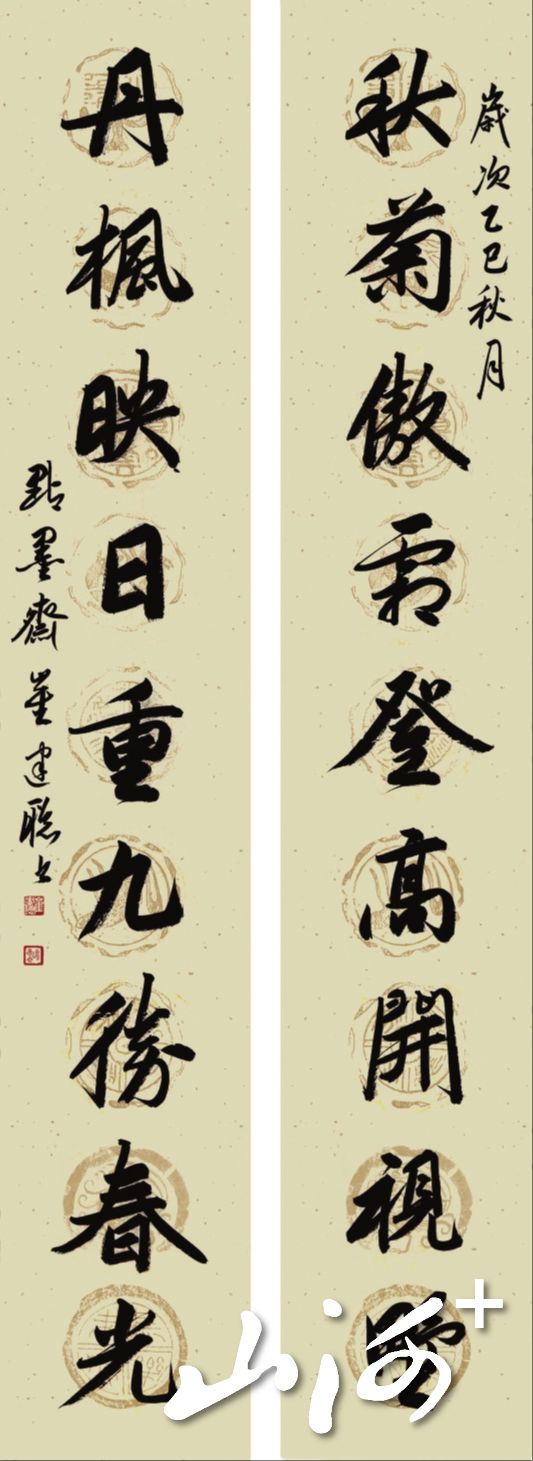 歲次乙巳秋月
秋菊傲霜登高開視野
丹楓映日重九勝春光
點墨齋崔建聰书
山河+